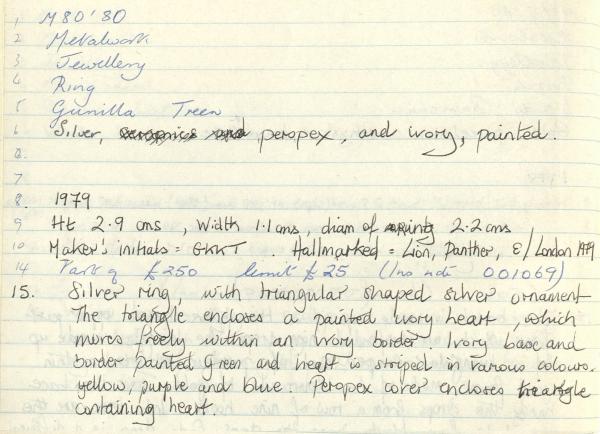 1 M80'80
2 Metalwork
3 Jewellery
4 Ring
5 Gunilla Treen
6 Silver, and peropex, and ivory, painted.
6.
7
8. 1979
9 Ht 2.9 cms, Width 1.1cms, diam of ring 2.2cms
10 Maker's initials = GKKT. Hallmarked = Lion, Panther, E/London 1979
14 Part of £250 limit £25 (Ino note 001069)
15. Silver ring, with triangular shaped silver ornament
The triangle encloses a painted ivory heart, which
moves freely within an ivory border. Ivory base and
border painted green and heart is striped in various colours.
yellow, purple and blue. Peropex cover encloses triangle
containing heart.